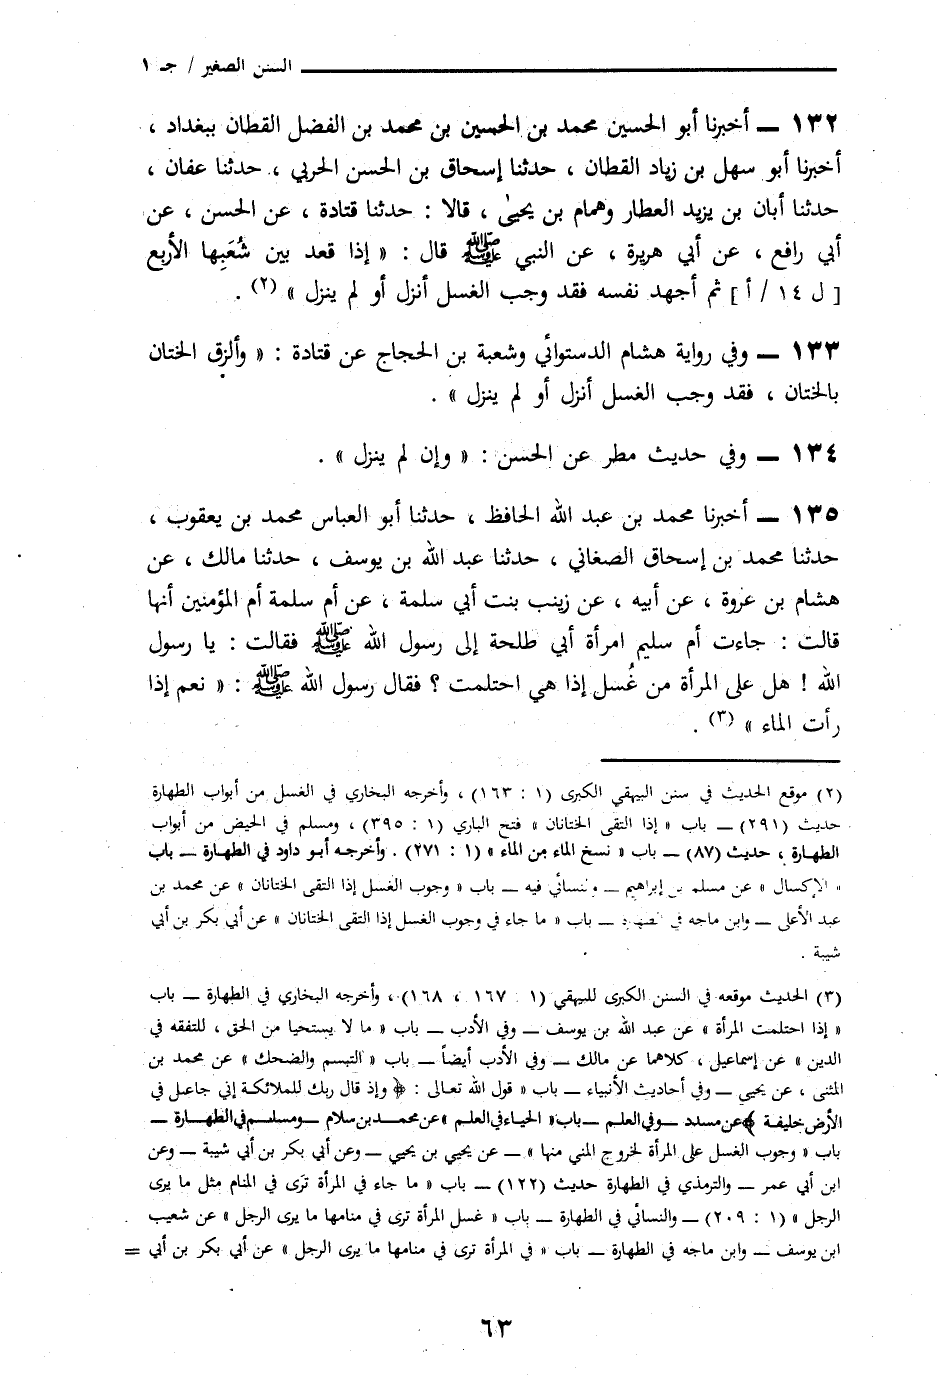 السنن الصغير / جـ ١
١٣٢ ــ أخبرنا أبو الحسين محمد بن الحسين بن محمد بن الفضل القطان ببغداد ،
أخبرنا أبو سهل بن زياد القطان ، حدثنا إسحاق بن الحسن الحربي ، حدثنا عفان ،
حدثنا أبان بن يزيد العطار وهمام بن يحيىٰ ، قالا : حدثنا قتادة ، عن الحسن ، عن
أبي رافع ، عن أبي هريرة ، عن النبي ﷺ قال : « إذا قعد بين شُعَبِها الأربع
[ ل ١٤ / أ ] ثم أجهد نفسه فقد وجب الغسل أنزل أو لم ينزل » (٢) .
١٣٣ ــ وفي رواية هشام الدستوائي وشعبة بن الحجاج عن قتادة : « وألزق الختان
بالختان ، فقد وجب الغسل أنزل أو لم ينزل » .
١٣٤ ــ وفي حديث مطر عن الحسن : « وإن لم ينزل » .
١٣٥ ــ أخبرنا محمد بن عبد الله الحافظ ، حدثنا أبو العباس محمد بن يعقوب ،
حدثنا محمد بن إسحاق الصغاني ، حدثنا عبد الله بن يوسف ، حدثنا مالك ، عن
هشام بن عروة ، عن أبيه ، عن زينب بنت أبي سلمة ، عن أم سلمة أم المؤمنين أنها
قالت : جاءت أم سليم امرأة أبي طلحة إلى رسول الله ﷺ فقالت : يا رسول
الله ! هل على المرأة من غُسل إذا هي احتلمت ؟ فقال رسول الله ﷺ : « نعم إذا
رأت الماء » (٣) .
(٢) موقع الحديث في سنن البيهقي الكبرى (١ : ١٦٣) ، وأخرجه البخاري في الغسل من أبواب الطهارة
حديث (٢٩١) ــ باب « إذا التقى الختانان » فتح الباري (١ : ٣٩٥) ، ومسلم في الحيض من أبواب
الطهارة ، حديث (٨٧) ــ باب « نسخ الماء من الماء » (١ : ٢٧١) . وأخرجه أبو داود في الطهارة ــ باب
« الإكسال » عن مسلم بن إبراهيم ــ والنسائي فيه ــ باب « وجوب الغسل إذا التقى الختانان » عن محمد بن
عبد الأعلى ــ وابن ماجه في الطهارة ــ باب « ما جاء في وجوب الغسل إذا التقى الختانان » عن أبي بكر بن أبي
شيبة .
(٣) الحديث موقعه في السنن الكبرى للبيهقي (١ : ١٦٧ ، ١٦٨) ، وأخرجه البخاري في الطهارة ــ باب
« إذا احتلمت المرأة » عن عبد الله بن يوسف ــ وفي الأدب ــ باب « ما لا يستحيا من الحق ، للتفقه في
الدين » عن إسماعيل ، كلاهما عن مالك ــ وفي الأدب أيضاً ــ باب « التبسم والضحك » عن محمد بن
المثنى ، عن يحيي ــ وفي أحاديث الأنبياء ــ باب « قول الله تعالى : ﴿ وإذ قال ربك للملائكة إني جاعل في
الأرض خليفة ﴾ عن مسدد ــ وفي العلم ــ باب « الحياء في العلم » عن محمد بن سلام ــ ومسلم في الطهارة ــ
باب « وجوب الغسل على المرأة لخروج المني منها » ــ عن يحيي بن يحيي ــ وعن أبي بكر بن أبي شيبة ــ وعن
ابن أبي عمر ــ والترمذي في الطهارة حديث (١٢٢) ــ باب « ما جاء في المرأة ترَى في المنام مثل ما يرى
الرجل » (١ : ٢٠٩) ــ والنسائي في الطهارة ــ باب « غسل المرأة ترى في منامها ما يرى الرجل » عن شعيب
ابن يوسف ــ وابن ماجه في الطهارة ــ باب « في المرأة ترى في منامها ما يرى الرجل » عن أبي بكر بن أبي =
٦٣